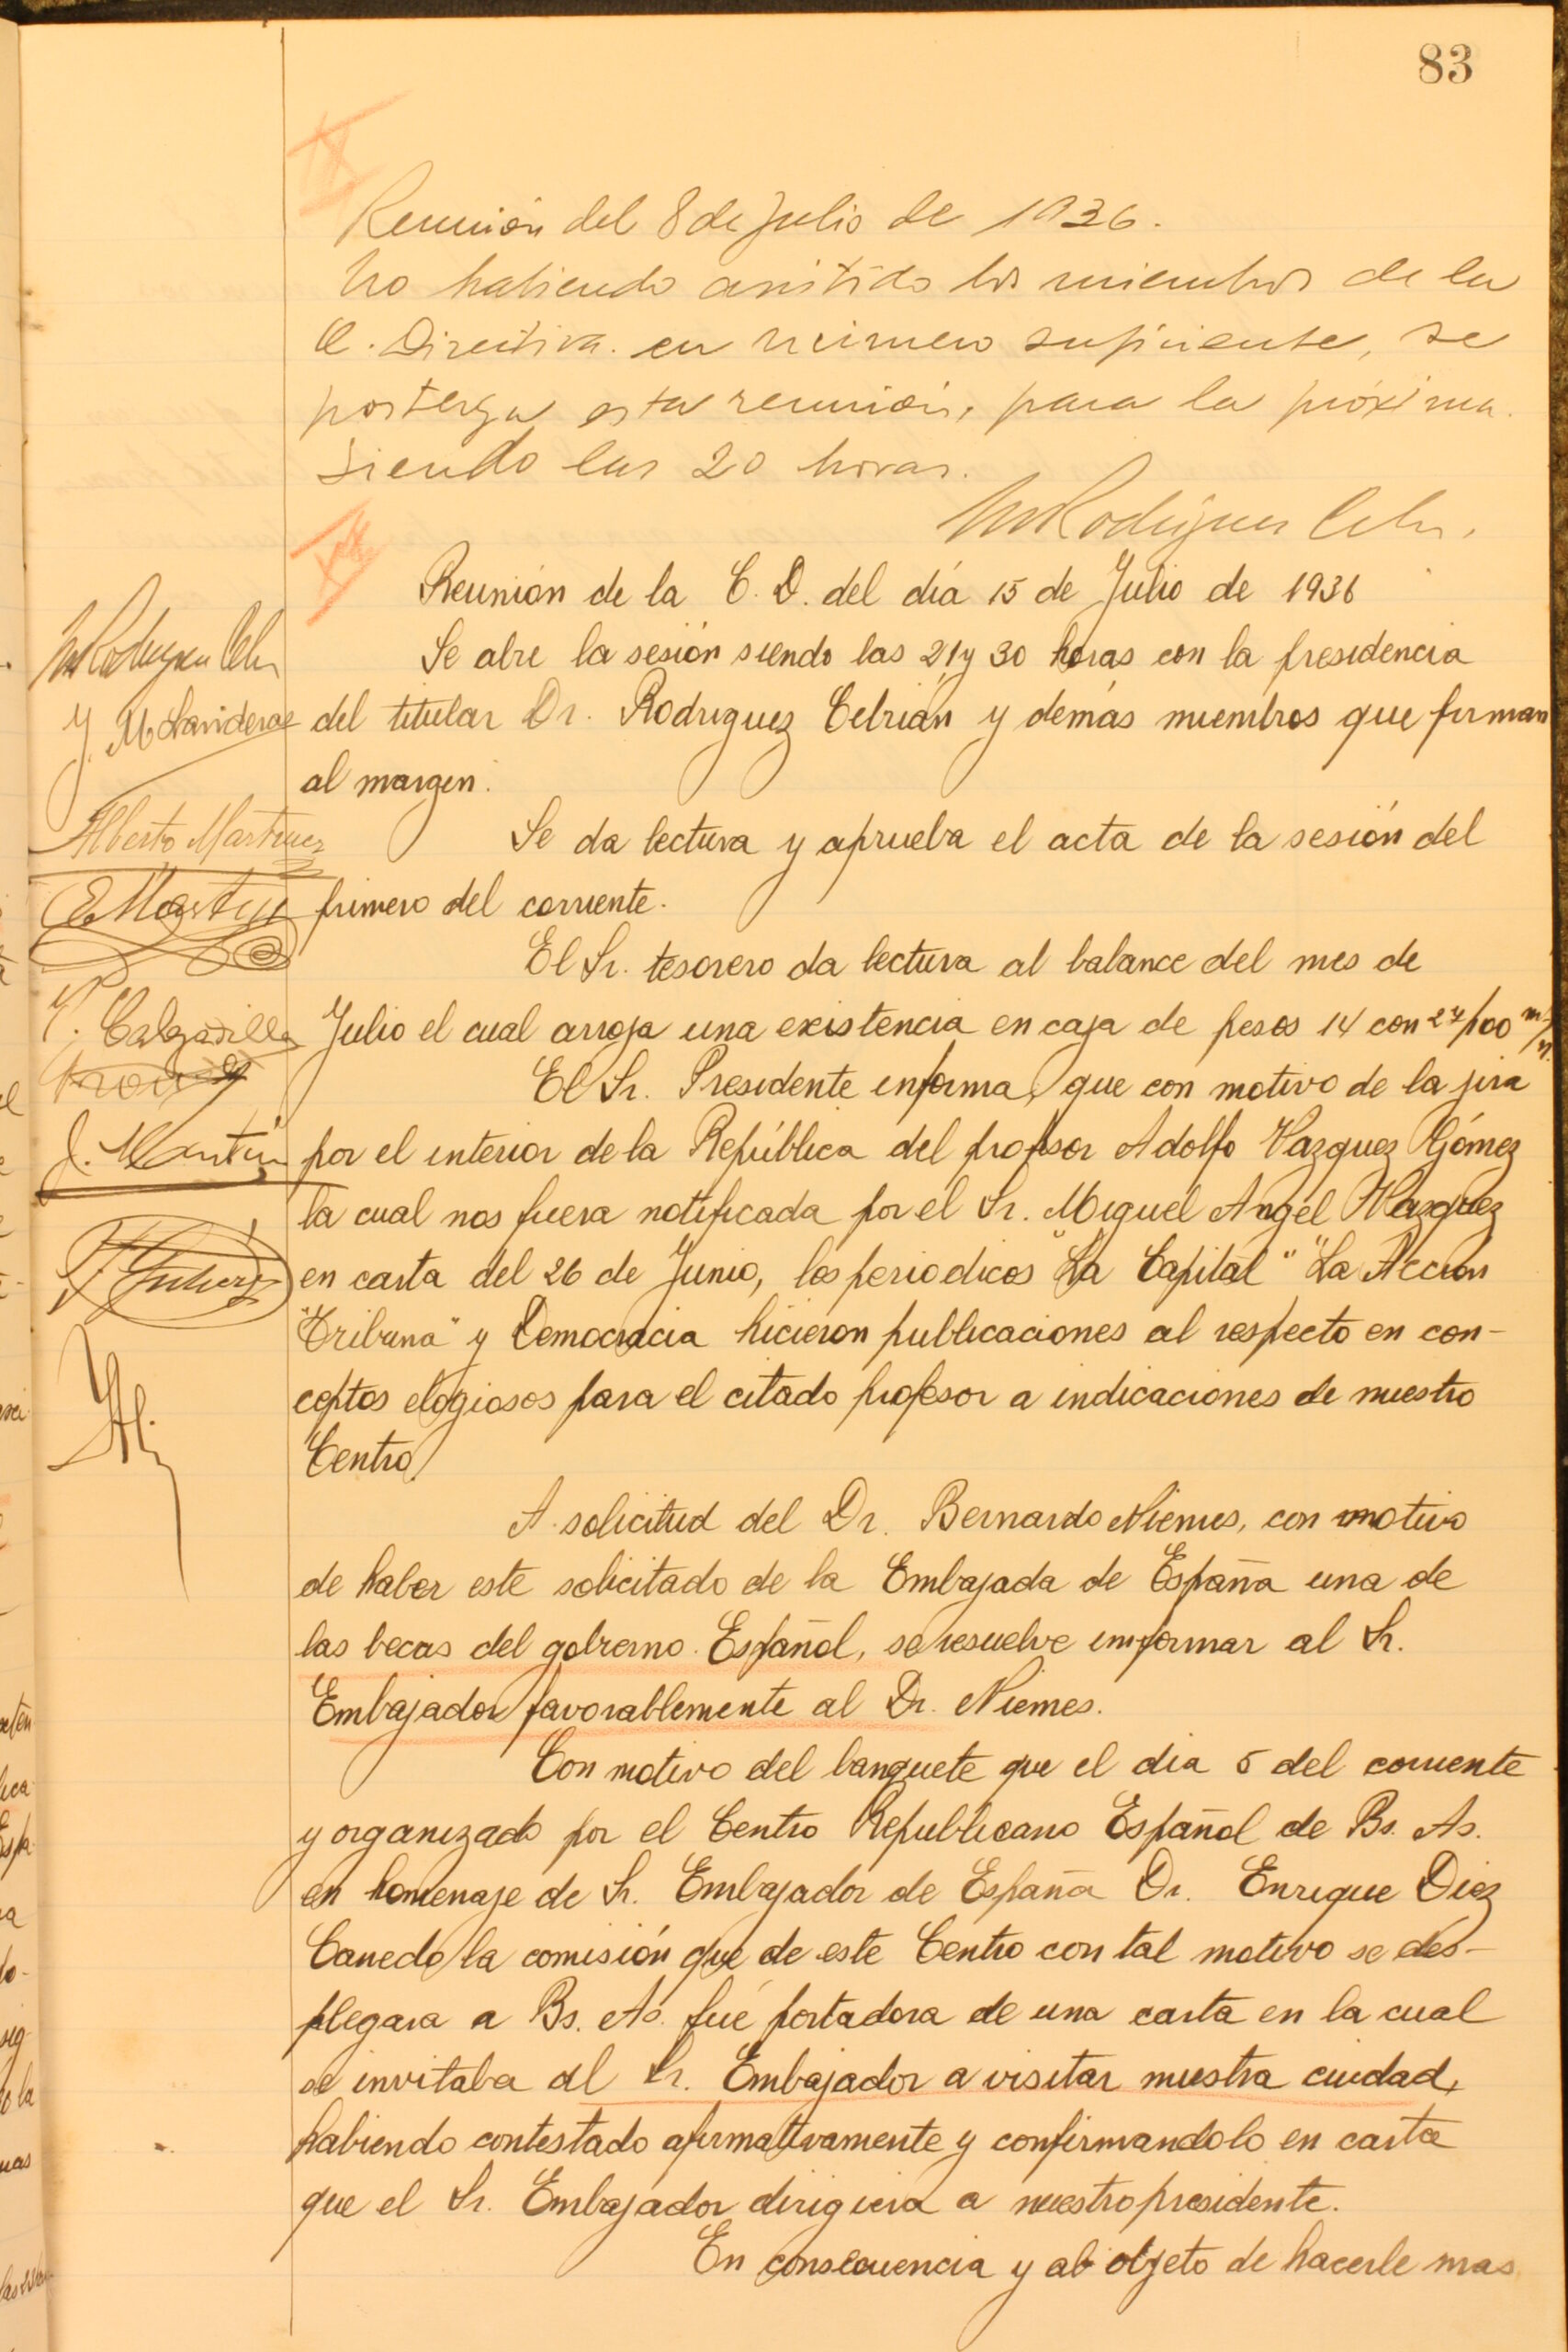 83
Reunión del 8 de Julio de 1936.
No habiendo asistido los miembros de la
C. Directiva. en número suficiente, se
posterga esta reunión, para la próxima.
Siendo las 20 horas.
M Rodriguez Cebr.
Reunión de la C. D. del día 15 de Julio de 1936
Se abre la sesión siendo las 21 y 30 horas con la presidencia
del titular Dr. Rodriguez Cebrián y demás miembros que firman
al margen.
Se da lectura y aprueba el acta de la sesión del
primero del corriente.
El Sr. tesorero da lectura al balance del mes de
Julio el cual arroja una existencia en caja de pesos 14 con 27/100 m/n.
El Sr. Presidente informa, que con motivo de la jira
por el interior de la República del profesor Adolfo Vazquez Gómez
la cual nos fuera notificada por el Sr. Miguel Angel Vazquez
en carta del 26 de Junio, los periodicos "La Capital" "La Accion
"Tribuna" y Democracia hicieron publicaciones al respecto en con-
ceptos elogiosos para el citado profesor a indicaciones de nuestro
Centro.
A solicitud del Dr. Bernardo Niemes, con motivo
de haber este solicitado de la Embajada de España una de
las becas del gobierno Español, se resuelve informar al Sr.
Embajador favorablemente al Dr. Niemes.
Con motivo del banquete que el dia 5 del corriente
y organizado por el Centro Republicano Español de Bs. As.
en homenaje de Sr. Embajador de España Dr. Enrique Diez
Canedo la comisión que de este Centro con tal motivo se des-
plegara a Bs. As. fué portadora de una carta en la cual
se invitaba al Sr. Embajador a visitar nuestra ciudad,
habiendo contestado afirmativamente y confirmandolo en carta
que el Sr. Embajador dirigiera a nuestro presidente.
En consecuencia y al objeto de hacerle mas
M Rodriguez Cebr
J. M. Landeras
Alberto Martinez
E Martin
P. Calzadilla
J. Martin